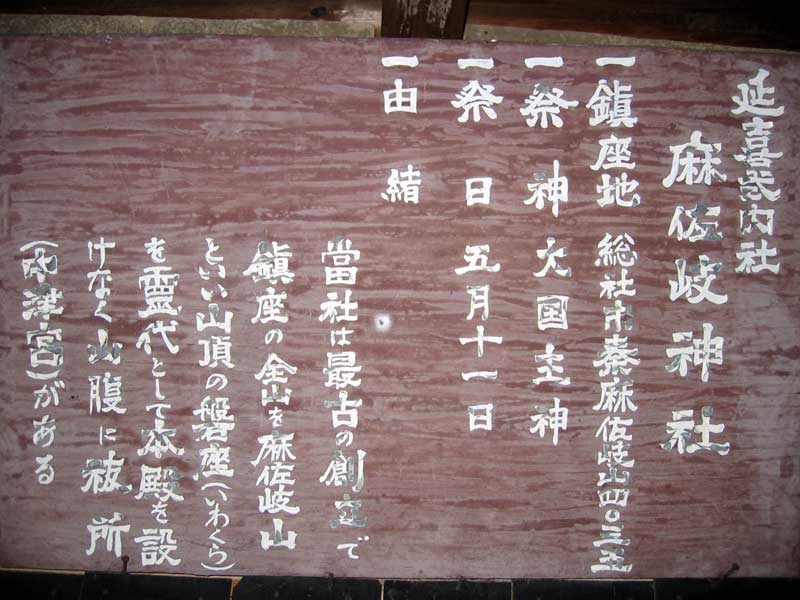 延喜式内社
麻佐岐神社
一鎮座地 総社市秦麻佐岐山四〇三五
一祭神 大国主神
一祭日 五月十一日
一由緒
當社は最古の創立で
鎮座の全山を麻佐岐山
といい山頂の磐座(いわくら)
を霊代として本殿を設
けなく山腹に祓所
(中津宮)がある